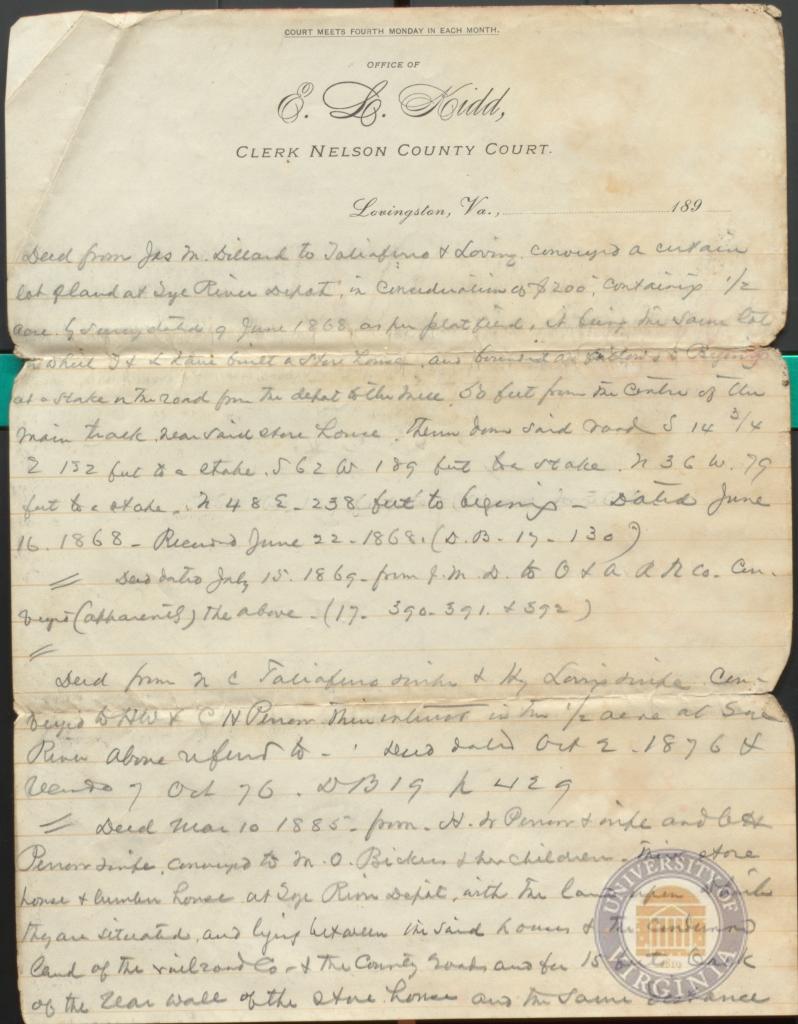 COURT MEETS FOURTH MONDAY IN EACH MONTH.
OFFICE OF
E. L. Kidd,
CLERK NELSON COUNTY COURT.
Lovingston, Va., 189
Deed from Jas M. Dillard to Taliaferro & Loving conveyed a certain
lot of land at Tye River Depot, in consideration of $200, containing 1/2
acre by survey dated 9 June 1868, as per plat filed, it being the same lot
on which T & L have built a store house, and bounded as follows to Begining
at a stake on the road from the depot to the 50 feet from the centre of the
main track near said store house. Then down said road S 14 3/4
E 132 feet to a stake. S 62 W 189 feet to a stake. N 36 W. 79
feet to a stake. N 48 E. 238 feet to begining - Dated June
16. 1868 - Record June 22 - 1868. (D.B. 17 - 130)
Deed dated July 15. 1869 - from J. M. D. to O & A R R Co. Con-
veyed (apparently) the above - (17 - 390 - 391. & 392)
Deed from N C Taliaferro & wife & Hy Loving & wife Con-
veyed to HW & C H Perrow their interest in the 1/2 acre at Tye
River above referred to - Deed dated Oct 2 - 1876 &
7 Oct 76. DB 19 p 429
Deed Mar 10 1885 - from H. W Perrow & wife and C H
Perrow & wife, conveyed to M. O. Bickers & her children - The store
house & lumber house at Tye River Depot, with the land upon which
they are situated, and lying between the said houses & the condemned
land of the railroad Co - & the County roads and for 15 feet back
of the rear wall of the store house and the same distance
UNIVERSITY OF VIRGINIA
1819